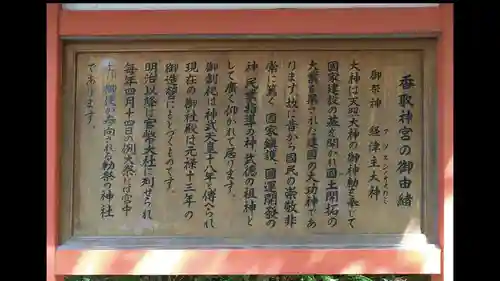 香取神宮の御由緒
御祭神 経津主大神
フツヌシノオホカミ
大神は天照大神の御神勅を奉じて
国家建設の基を開かれ国土開拓の
大業を果された建国の大功神であ
ります故に昔から国民の崇敬非
常に篤く国家鎮護、国運開発の
神、民業指導の神、武徳の祖神と
して廣く仰がれて居ります。
御創祀は神武天皇十八年と傳へられ
現在の御社殿は元禄十三年の
御造営にかゝるものです。
明治以降は官幣大社に列せられ
毎年四月十四日の例大祭には宮中
より御使が参向される勅祭の神社
であります。